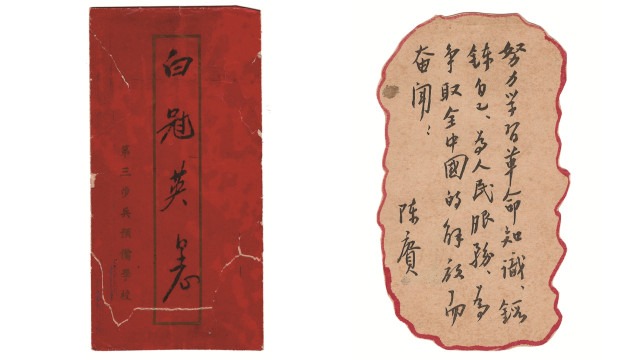 白冠英同志
第三步兵預備學校
努力学習革命知識、鍛
鍊自己、為人民服務、為
争取全中國的解放而
奋闘！
陈赓